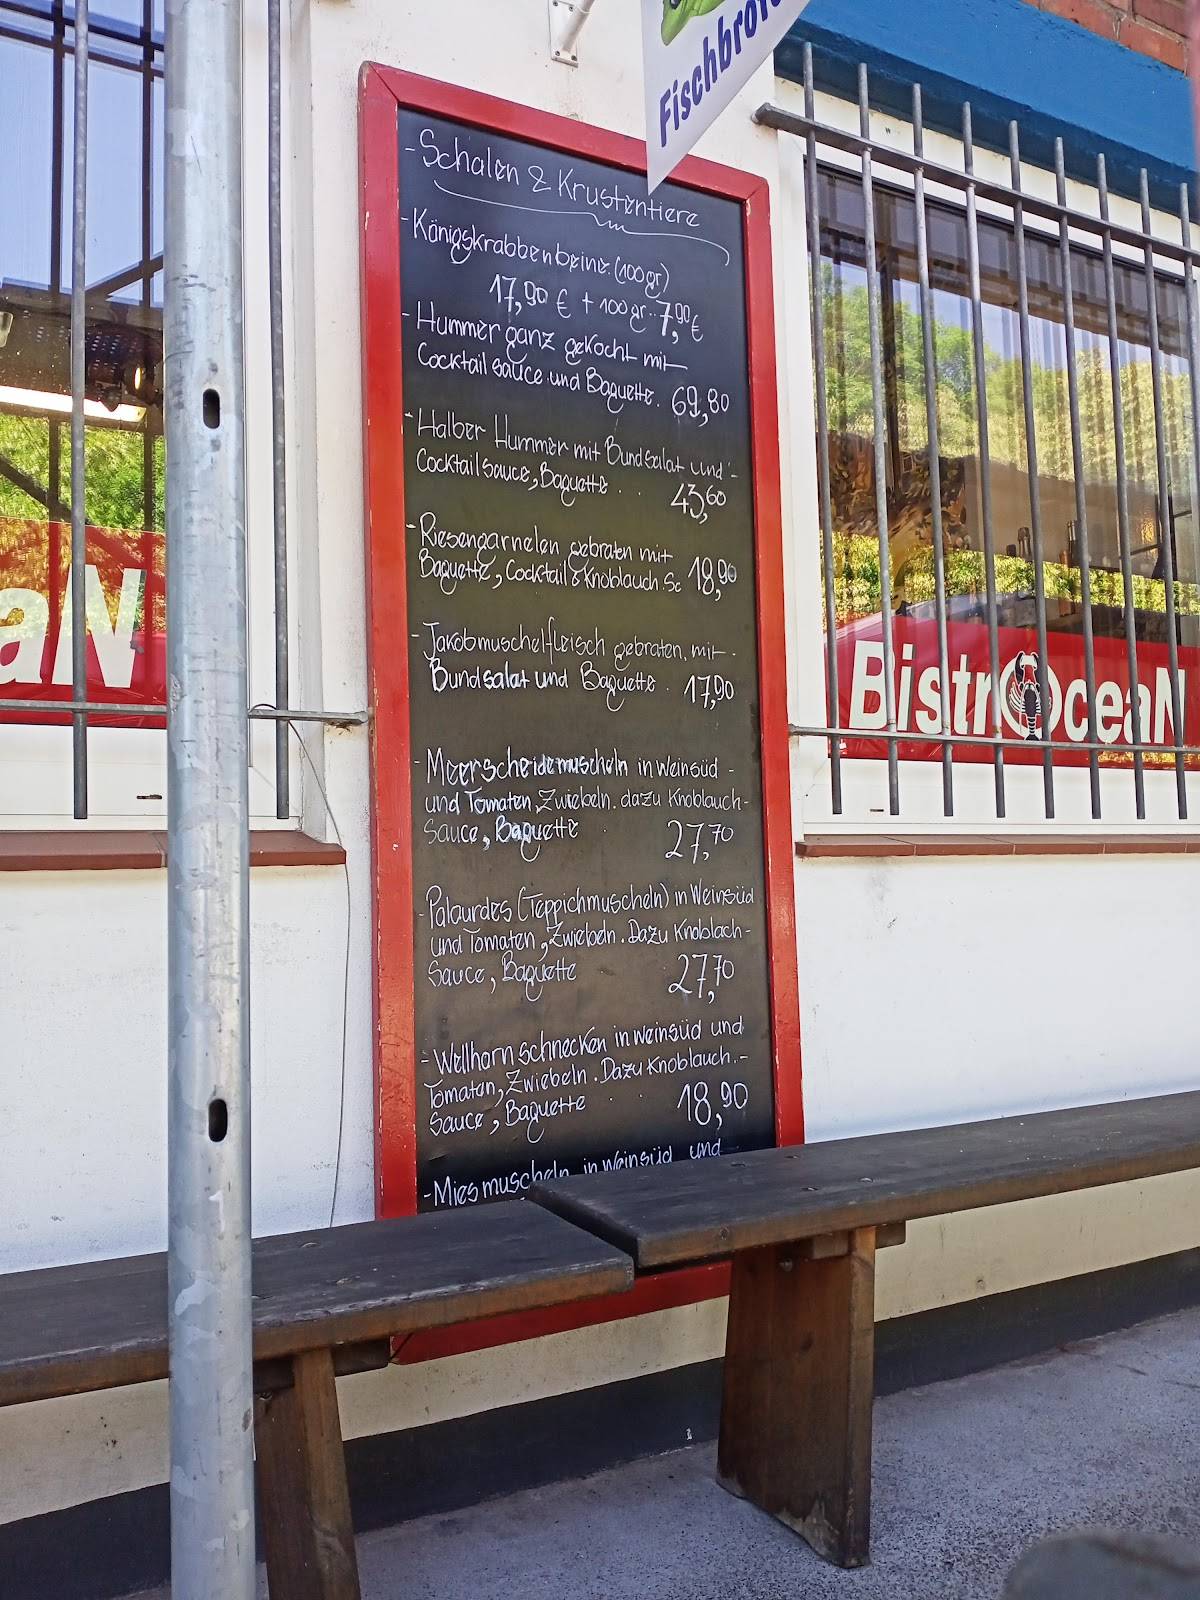 Fischbröt
- Schalen & Krustentiere
- Königskrabbenbeine (100gr)
17,90 € + 100gr.. 7,90 €
- Hummer ganz gekocht mit
Cocktailsauce und Baguette. 69,80
- Halber Hummer mit Bundsalat und -
Cocktailsauce, Baguette . . 43,60
- Riesengarnelen gebraten mit
Baguette, Cocktail & Knoblauch.Sc 18,90
- Jakobmuschelfleisch gebraten. mit.
Bundsalat und Baguette. 17,90
- Meerscheidemuscheln in Weinsüd -
und Tomaten, Zwiebeln. dazu Knoblauch-
Sauce, Baguette 27,70
- Palourdes (Teppichmuscheln) in Weinsüd
und Tomaten, Zwiebeln. Dazu Knoblach-
Sauce, Baguette 27,70
- Wellhornschnecken in weinsüd und
Tomaten, Zwiebeln. Dazu Knoblauch.-
Sauce, Baguette . . 18,90
- Miesmuscheln in Weinsüd und
eaN
BistrOceaN